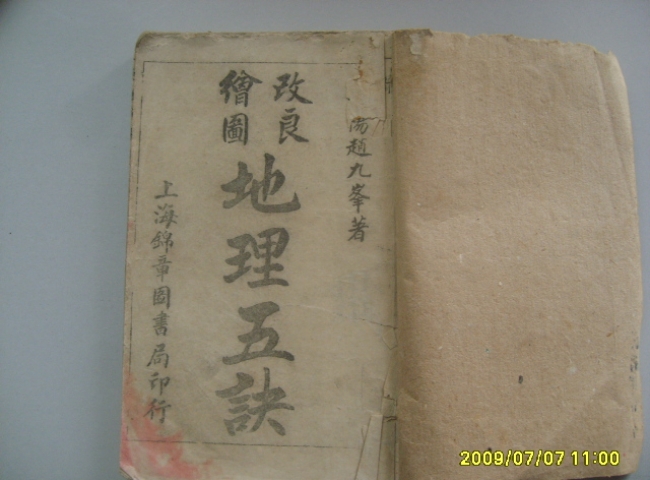 陽趙九峯著
改良
繪圖
地理五訣
上海錦章圖書局印行
2009/07/07 11:00